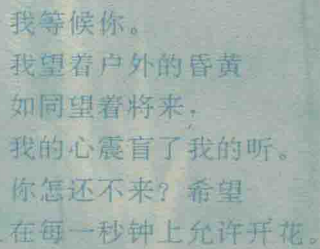 我等候你。
我望着户外的昏黄
如同望着将来，
我的心震盲了我的听。
你怎还不来？希望
在每一秒钟上允许开花。